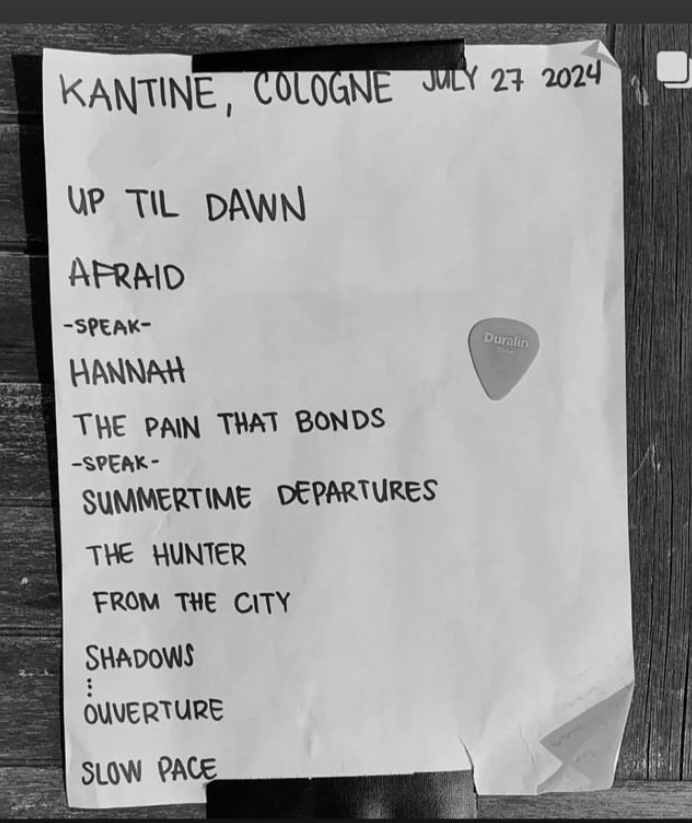 KANTINE, COLOGNE JULY 27 2024
UP TIL DAWN
AFRAID
-SPEAK-
HANNAH
THE PAIN THAT BONDS
-SPEAK-
SUMMERTIME DEPARTURES
THE HUNTER
FROM THE CITY
SHADOWS
⋮
OUVERTURE
SLOW PACE
Duralin